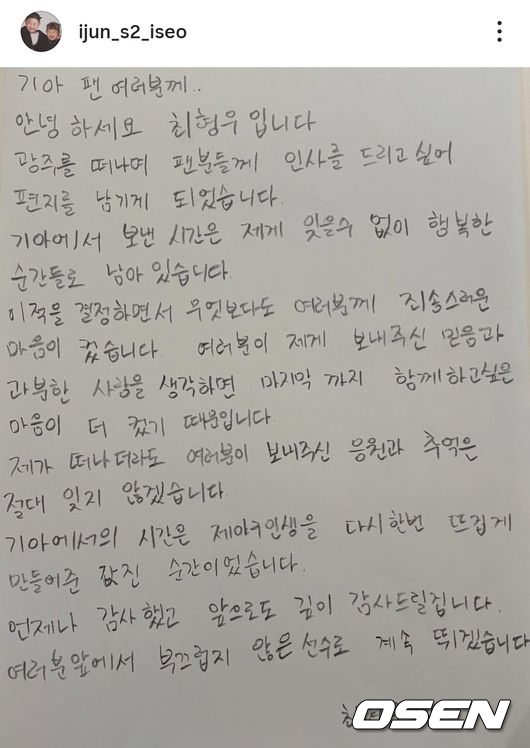 ijun_s2_iseo
기아 팬 여러분께..
안녕 하세요 최형우 입니다
광주를 떠나며 팬분들께 인사를 드리고 싶어
편지를 남기게 되었습니다.
기아에서 보낸 시간은 제게 잊을수 없이 행복한
순간들로 남아 있습니다.
이적을 결정하면서 무엇보다도 여러분께 죄송스러운
마음이 컸습니다. 여러분이 제게 보내주신 믿음과
과분한 사랑을 생각하면 마지막 까지 함께하고싶은
마음이 더 컸기 때문입니다.
제가 떠나더라도 여러분이 보내주신 응원과 추억은
절대 잊지 않겠습니다.
기아에서의 시간은 제야구인생을 다시한번 뜨겁게
만들어준 값진 순간이었습니다.
언제나 감사했고 앞으로도 깊이 감사드릴겁니다.
여러분앞에서 부끄럽지 않은 선수로 계속 뛰겠습니다
OSEN